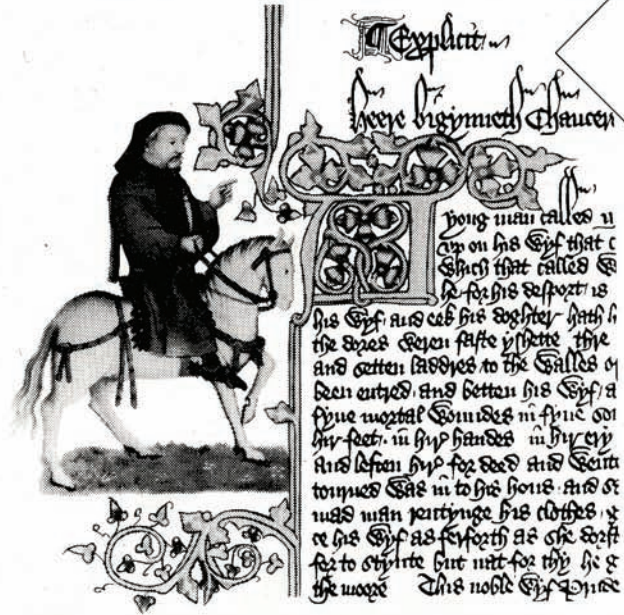 Explicit
Heere bigynneth Chaucer
A
yong man called
vp on his wyf that
which that called
he for his desport is
his wyf and eek his doghter hath
the dores weren faste yshette thre
and setten laddres to the walles
been entred and betten his wyf
fyue mortal woundes in fyue
hir feet in hir handes in hir ery
and leften hir for deed and went
tourned was in to his hous and
mad man rentynge his clothes
ce his wyf as ferforth as she dorst
for to stynte but nat for thy he
the moore This noble wyf Prude